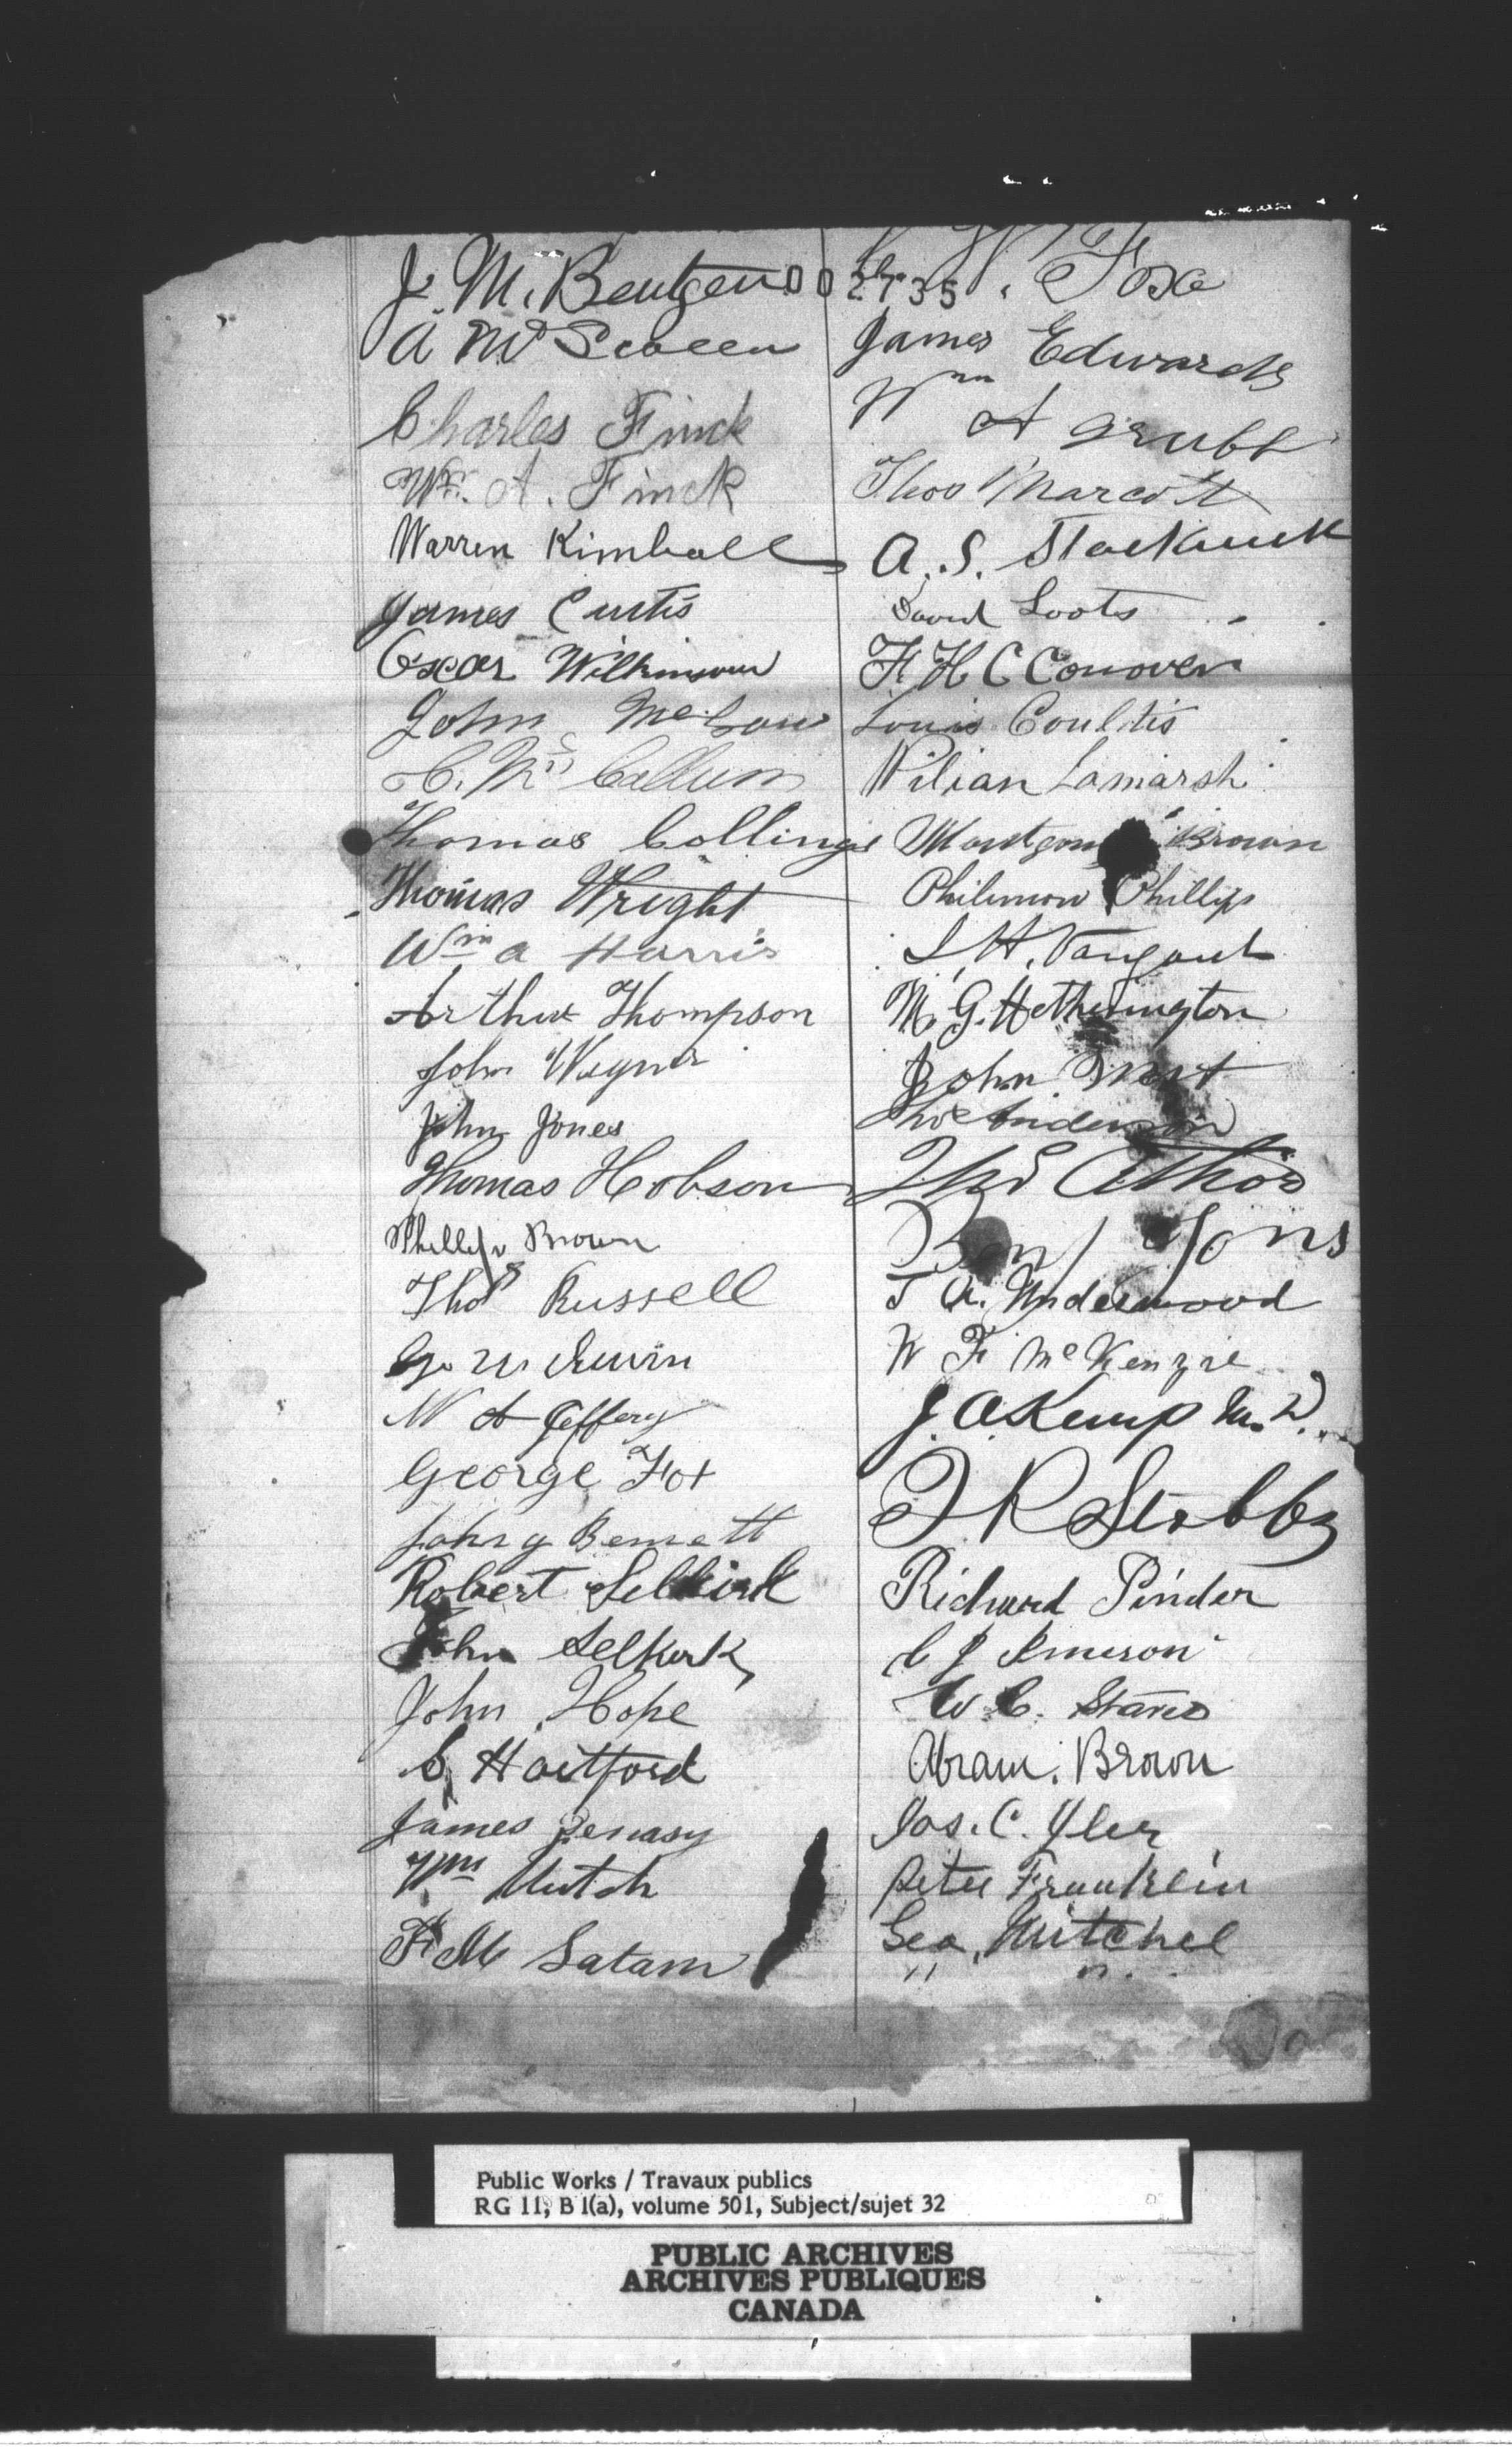 J. M. Bentgen
002735
A Mc
Charles Finck
Wm. A. Finck
Warren Kimball
James Curtis
Oscar Wilkinson
John
C. Mc Callum
Thomas Collings
Thomas Wright
Wm a Harris
Arthur Thompson
John Wigner
John Jones
Thomas Hobson
Phillip Brown
Thos Russell
Geo. W. Irwin
W A Jeffery
George Fox
John G Bennett
Robert Selkirk
John Selkirk
John Hope
Hartford
James
Wm Mutch
F. M. Latam
Fox
James Edwards
Wm A Grubb
Thos Marcott
A. S.
David Loots
F. H. C Conover
Louis Coultis
Wilian Lamarsh
Brown
Philimon Phillips
M. G. Hetherington
John West
Anderson
Thos Athos
Benj Jons
T. A. Underwood
W F McKenzie
J. A. Kemp M.D.
T R Stobbs
Richard Pinder
C J Ameron
W. C.
Abram. Brown
Jas. C. Iler
Peter Franklein
Geo. Mitchel
" "
Public Works / Travaux publics
RG 11, B 1(a), volume 501, Subject/sujet 32
PUBLIC ARCHIVES
ARCHIVES PUBLIQUES
CANADA